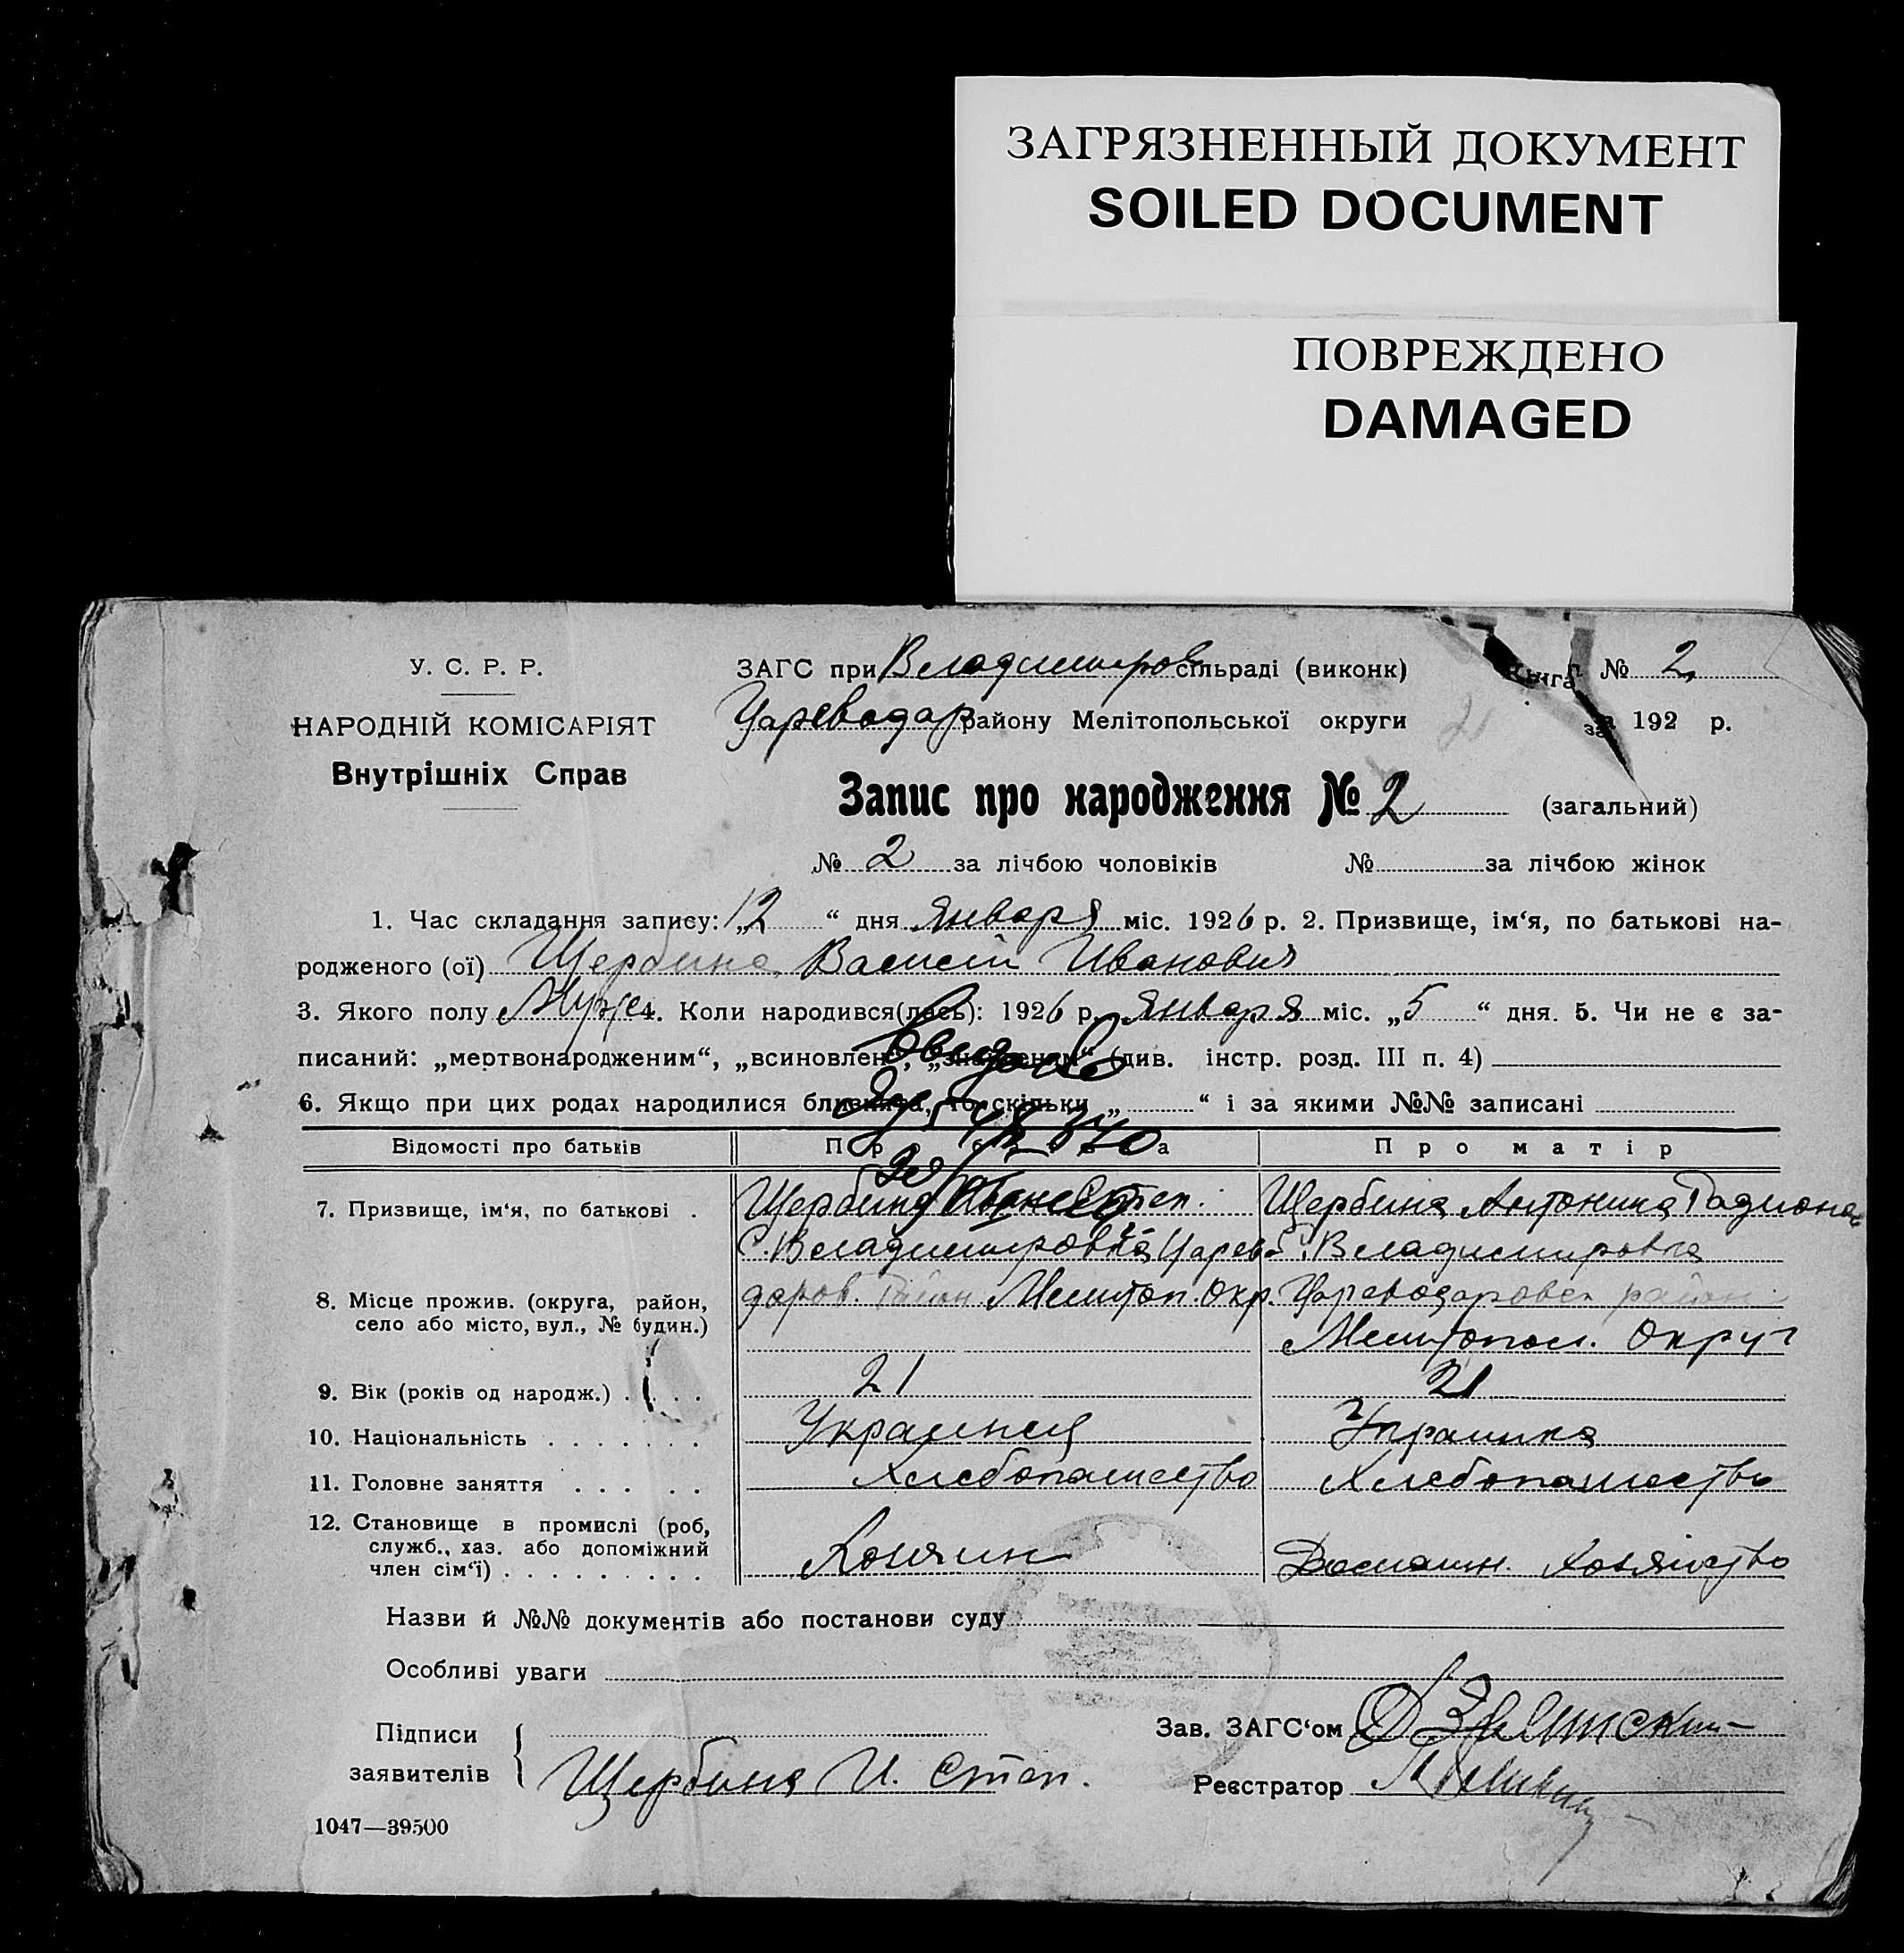 ЗАГРЯЗНЕННЫЙ ДОКУМЕНТ
SOILED DOCUMENT
ПОВРЕЖДЕНО
DAMAGED
У. С. Р. Р.
НАРОДНІЙ КОМІСАРІЯТ
Внутрішніх Справ
ЗАГС при Владимиров сільраді (виконк)
Книга № 2
Цареводар району Мелітопольської округи
за 192 р.
Запис про народження № 2 (загальний)
№ 2 за лічбою чоловіків № за лічбою жінок
1. Час складання запису: „12“ дня Января міс. 1926 р. 2. Призвище, ім‘я, по батькові на-
родженого (ої) Щербина Василий Иванович
3. Якого полу Муж. 4. Коли народився(лась): 1926 р. Января міс. „5“ дня. 5. Чи не є за-
писаний: „мертвонародженим“, „всиновлен“, „знайденим“ (див. інстр. розд. III п. 4)
6. Якщо при цих родах народилися близнята, то скільки „ “ і за якими №№ записані
Відомості про батьків
Про батька
Про матір
7. Призвище, ім‘я, по батькові .
Щербина Иван Степ.
Щербина Антонина Радионов
С. Владимировка Царево-
С. Владимировка
8. Місце прожив. (округа, район,
село або місто, вул., № будин.)
даров. Район Мелитоп. Окр.
Цареводаровск район
Мелитопол. Округ
9. Вік (років од народж.) . . . .
21
21
10. Національність . . . . . . .
Украинец
Украинка
11. Головне заняття . . . . .
Хлебопашество
Хлебопашество
12. Становище в промислі (роб,
служб., хаз. або допоміжний
член сім‘ї) . . . . . . . . . .
Хозяин
Домашн. Хозяйство
Назви й №№ документів або постанови суду
Особливі уваги
Підписи
заявителів
Щербина И. Степ.
Зав. ЗАГС‘ом
Реєстратор
1047—39500